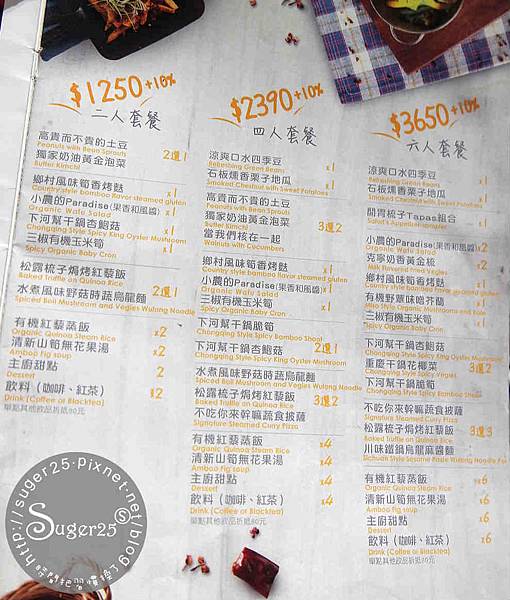 $1250+10%
二人套餐
高貴而不貴的土豆
Peanuts with Bean Sprouts
獨家奶油黃金泡菜
Butter Kimchi
2選1
鄉村風味筍香烤麩 x1
Country style bamboo flavor steamed gluten
小農的Paradise(果香和風醬) x1
Organic Wafu Salad
下河幫干鍋杏鮑菇 x1
Chongqing Style Spicy King Oyster Mushroom
三椒有機玉米筍 x1
Spicy Organic Baby Cron
松露梳子焗烤紅藜飯
Baked Truffle on Quinoa Rice
水煮風味野菇時蔬烏龍麵 2選1
Spiced Boil Mushroom and Vegies Wulong Noodle
有機紅藜蒸飯 x2
Organic Quinoa Steam Rice
清新山筍無花果湯 x2
Amboo Fig soup
主廚甜點 2
Dessert
飲料（咖啡、紅茶） x2
Drink (Coffee or Blacktea)
單點其他飲品折抵80元
$2390+10%
四人套餐
涼爽口水四季豆 x1
Refreshing Green Beans
石板燻香栗子地瓜 x1
Smoked Chestnut with Sweet Potatoes
高貴而不貴的土豆
Peanuts with Bean Sprouts
獨家奶油黃金泡菜 3選2
Butter Kimchi
當我們核在一起
Walnuts with Cucumbers
鄉村風味筍香烤麩 x1
Country style bamboo flavor steamed gluten
小農的Paradise(果香和風醬) x1
Organic Wafu Salad
三椒有機玉米筍 x1
Spicy Organic Baby Cron
下河幫干鍋脆筍
Chongqing Style Spicy Bamboo Shoot
下河幫干鍋杏鮑菇 2選1
Chongqing Style Spicy King Oyster Mushroom
水煮風味野菇時蔬烏龍麵
Spiced Boil Mushroom and Vegies Wulong Noodle
松露梳子焗烤紅藜飯 3選2
Baked Truffle on Quinoa Rice
不吃你來幹嘛蔬食披薩
Signature Steamed Curry Pizza
有機紅藜蒸飯 x4
Organic Quinoa Steam Rice
清新山筍無花果湯 x4
Amboo Fig soup
主廚甜點 x4
Dessert
飲料（咖啡、紅茶） x4
Drink (Coffee or Blacktea)
單點其他飲品折抵80元
$3650+10%
六人套餐
涼爽口水四季豆 x1
Refreshing Green Beans
石板燻香栗子地瓜 x1
Smoked Chestnut with Sweet Potatoes
開胃梳子Tapas組合 x1
Sufut's Appetizer sampler
小農的Paradise(果香和風醬) x2
Organic Wafu Salad
克寧奶香黃金梳 x2
Milk Flavored Fried Vegies
鄉村風味筍香烤麩 x1
Country style bamboo flavor steamed gluten
有機野蕈味噌芥蘭 x1
Miso Style Organic Mushrooms and Kale
三椒有機玉米筍 x1
Spicy Organic Baby Cron
下河幫干鍋杏鮑菇
Chongqing Style Spicy King Oyster Mushroom
重慶干鍋花椰菜 3選2
Chongqing Style Spicy Vegies
下河幫干鍋脆筍
Chongqing Style Spicy Bamboo Shoot
不吃你來幹嘛蔬食披薩
Signature Steamed Curry Pizza
松露梳子焗烤紅藜飯 3選2
Baked Truffle on Quinoa Rice
川味鐵鍋烏龍麻醬麵
Sichuan Style Sesame Paste Wulong Noodle Pot
有機紅藜蒸飯 x6
Organic Quinoa Steam Rice
清新山筍無花果湯 x6
Amboo Fig soup
主廚甜點 x6
Dessert
飲料（咖啡、紅茶） x6
Drink (Coffee or Blacktea)
單點其他飲品折抵80元
http://suger25.pixnet.net/blog
Suger25